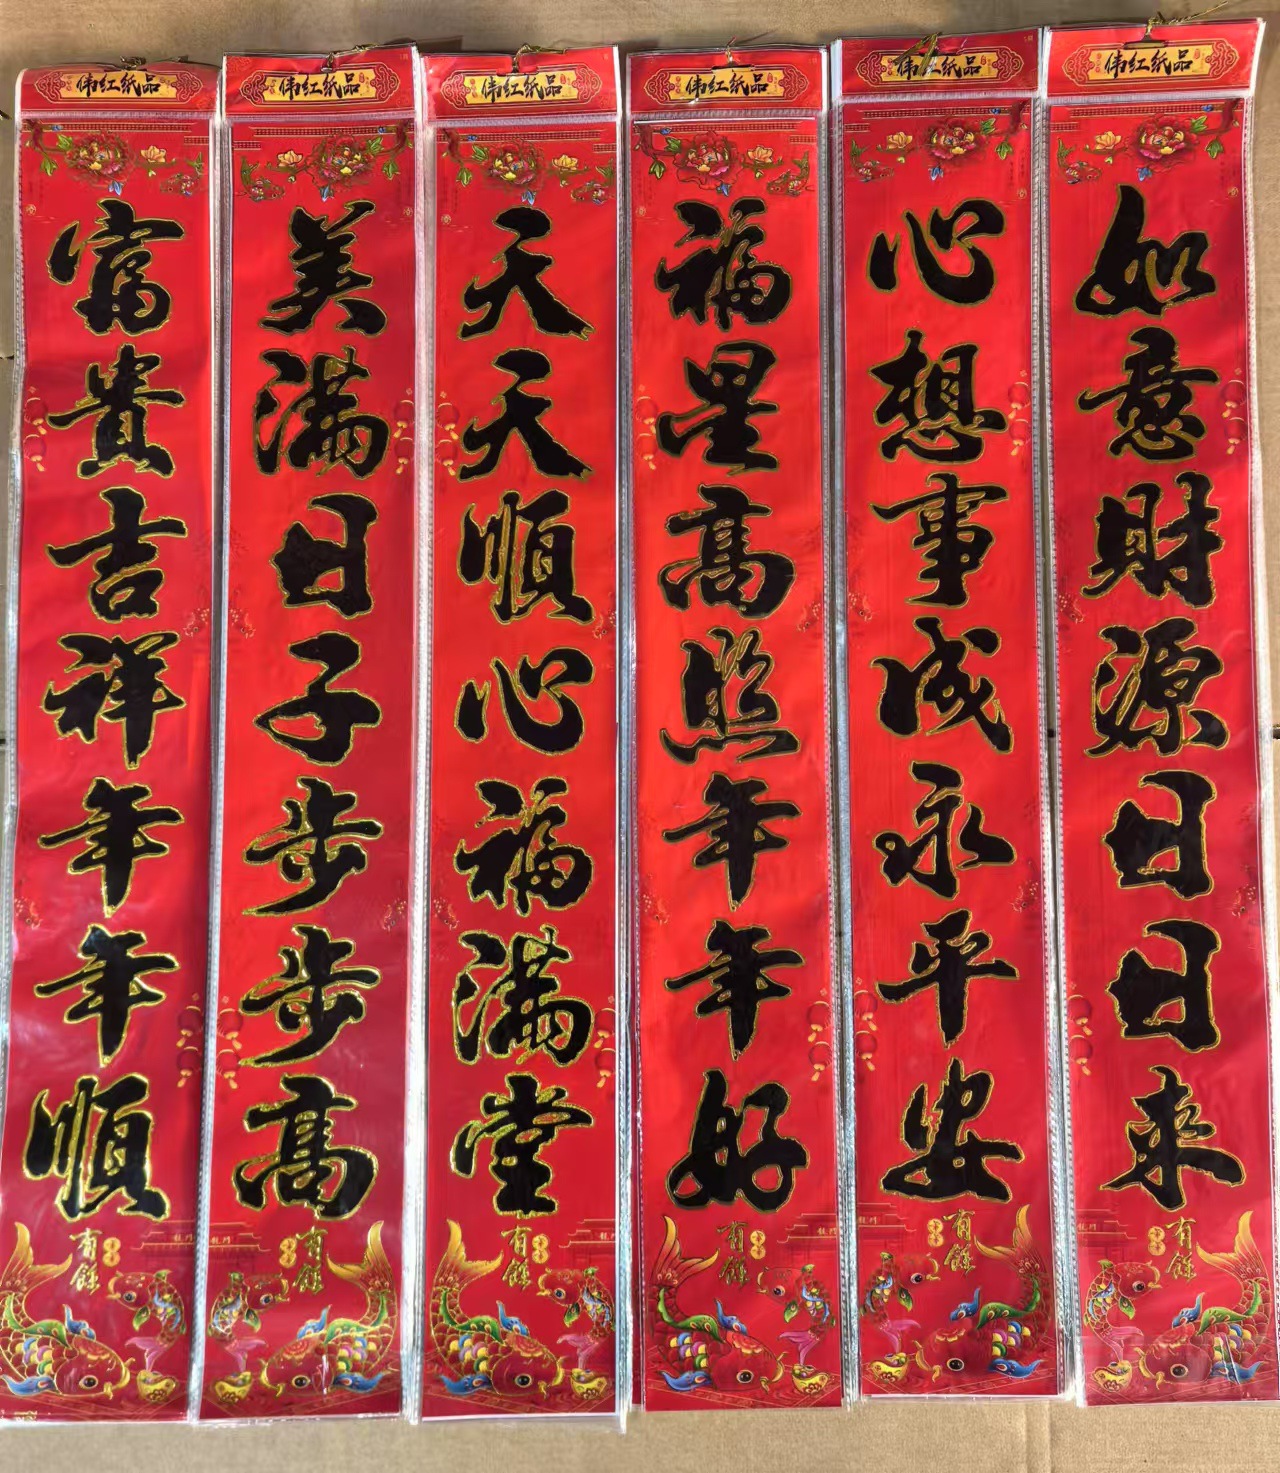 伟红纸品
富貴吉祥年年順
有餘
伟红纸品
美满日子步步高
有餘
龍門
伟红纸品
天天順心福满堂
有餘
伟红纸品
福星高照年年好
有餘
龍門
伟红纸品
心想事成永平安
有餘
龍門
伟红纸品
如意財源日日來
有餘